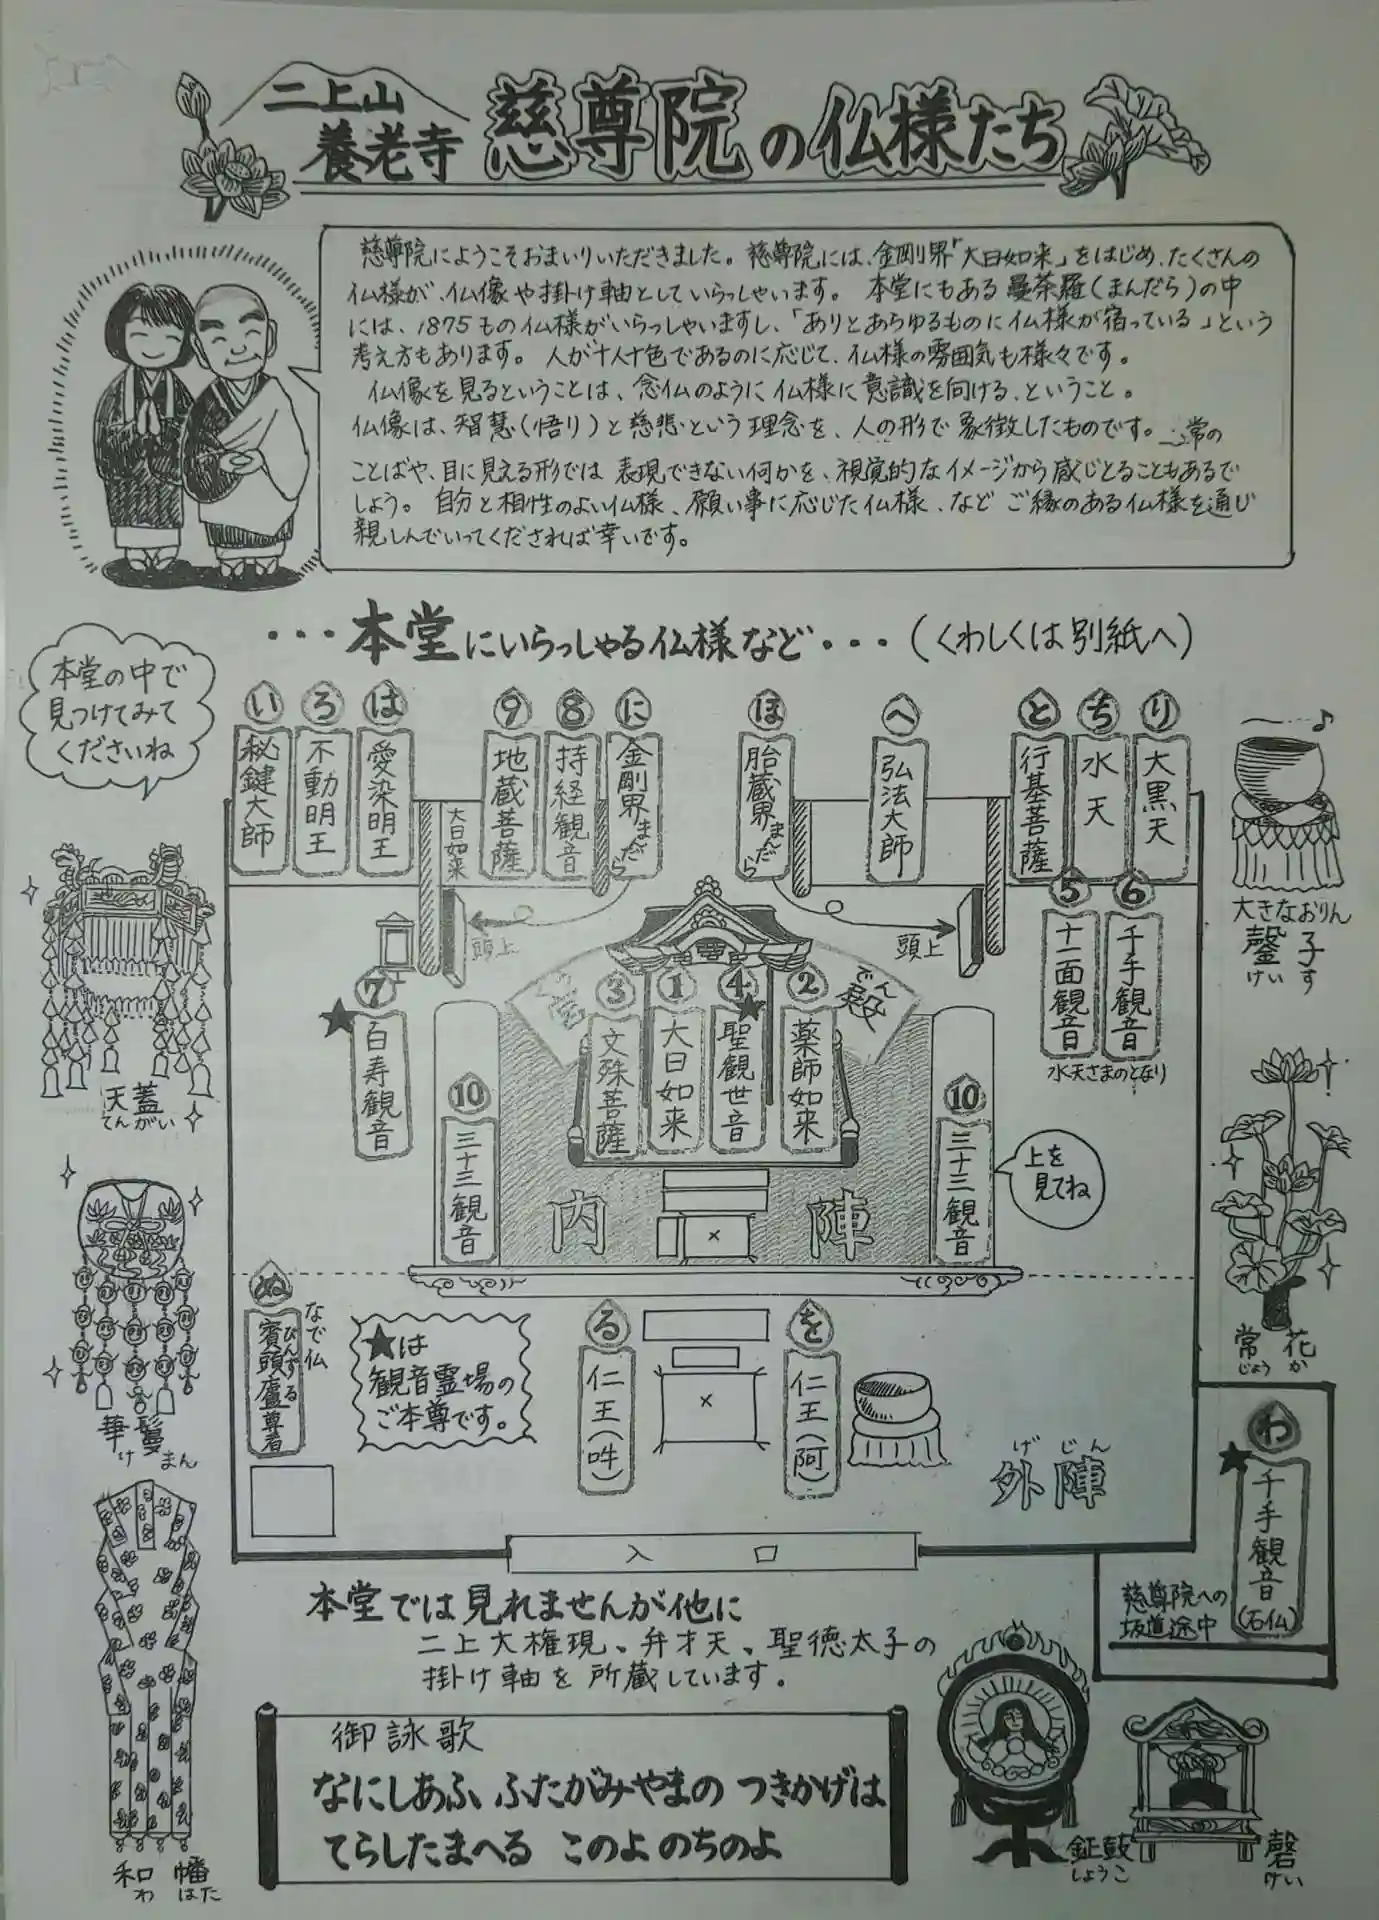 二上山
養老寺 慈尊院の仏様たち
慈尊院にようこそおまいりいただきました。慈尊院には、金剛界「大日如来」をはじめ、たくさんの
仏様が、仏像や掛け軸としていらっしゃいます。 本堂にもある曼荼羅(まんだら)の中
には、1875もの仏様がいらっしゃいますし、「ありとあらゆるものに仏様が宿っている」という
考え方もあります。 人が十人十色であるのに応じて、仏様の雰囲気も様々です。
仏像を見るということは、念仏のように仏様に意識を向ける、ということ。
仏像は、智慧(悟り)と慈悲という理念を、人の形で象徴したものです。 常の
ことばや、目に見える形では 表現できない何かを、視覚的なイメージから感じとることもあるで
しょう。 自分と相性のよい仏様、願い事に応じた仏様、など ご縁のある仏様を通じ
親しんでいってくだされば幸いです。
・・・本堂にいらっしゃる仏様など・・・(くわしくは別紙へ)
本堂の中で
見つけてみて
くださいね
い 秘鍵大師
ろ 不動明王
は 愛染明王
大日如来
9 地蔵菩薩
8 持経観音
に 金剛界まんだら
ほ 胎蔵界まんだら
へ 弘法大師
と 行基菩薩
ち 水天
り 大黒天
♪
大きなおりん
磬子
けいす
頭上
頭上
5 十一面観音
6 千手観音
水天さまのとなり
宮殿
でん
★7 百寿観音
3 文殊菩薩
1 大日如来
4★ 聖観世音
2 薬師如来
10 三十三観音
10 三十三観音
上を
見てね
内陣
天蓋
てんがい
華鬘
けまん
常花
じょうか
ぬ 賓頭盧尊者
びんずる
なで仏
★は
観音霊場の
ご本尊です。
る 仁王(吽)
を 仁王(阿)
げじん
外陣
わ
★千手観音(石仏)
慈尊院への
坂道途中
入口
本堂では見れませんが他に
二上大権現、弁才天、聖徳太子の
掛け軸を所蔵しています。
御詠歌
なにしあふ ふたがみやまの つきかげは
てらしたまへる このよ のちのよ
和幡
わはた
鉦鼓
しょうこ
磬
けい